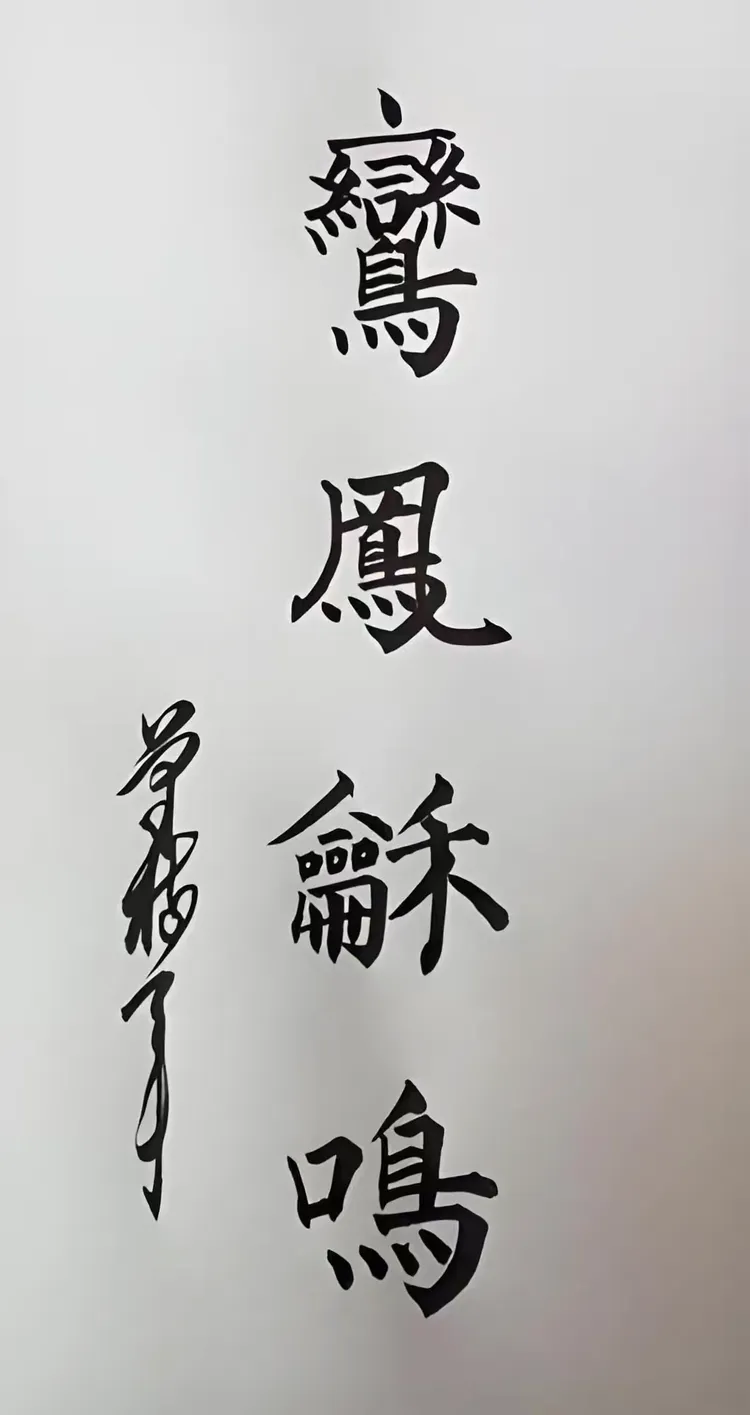 鸞鳳龢鳴